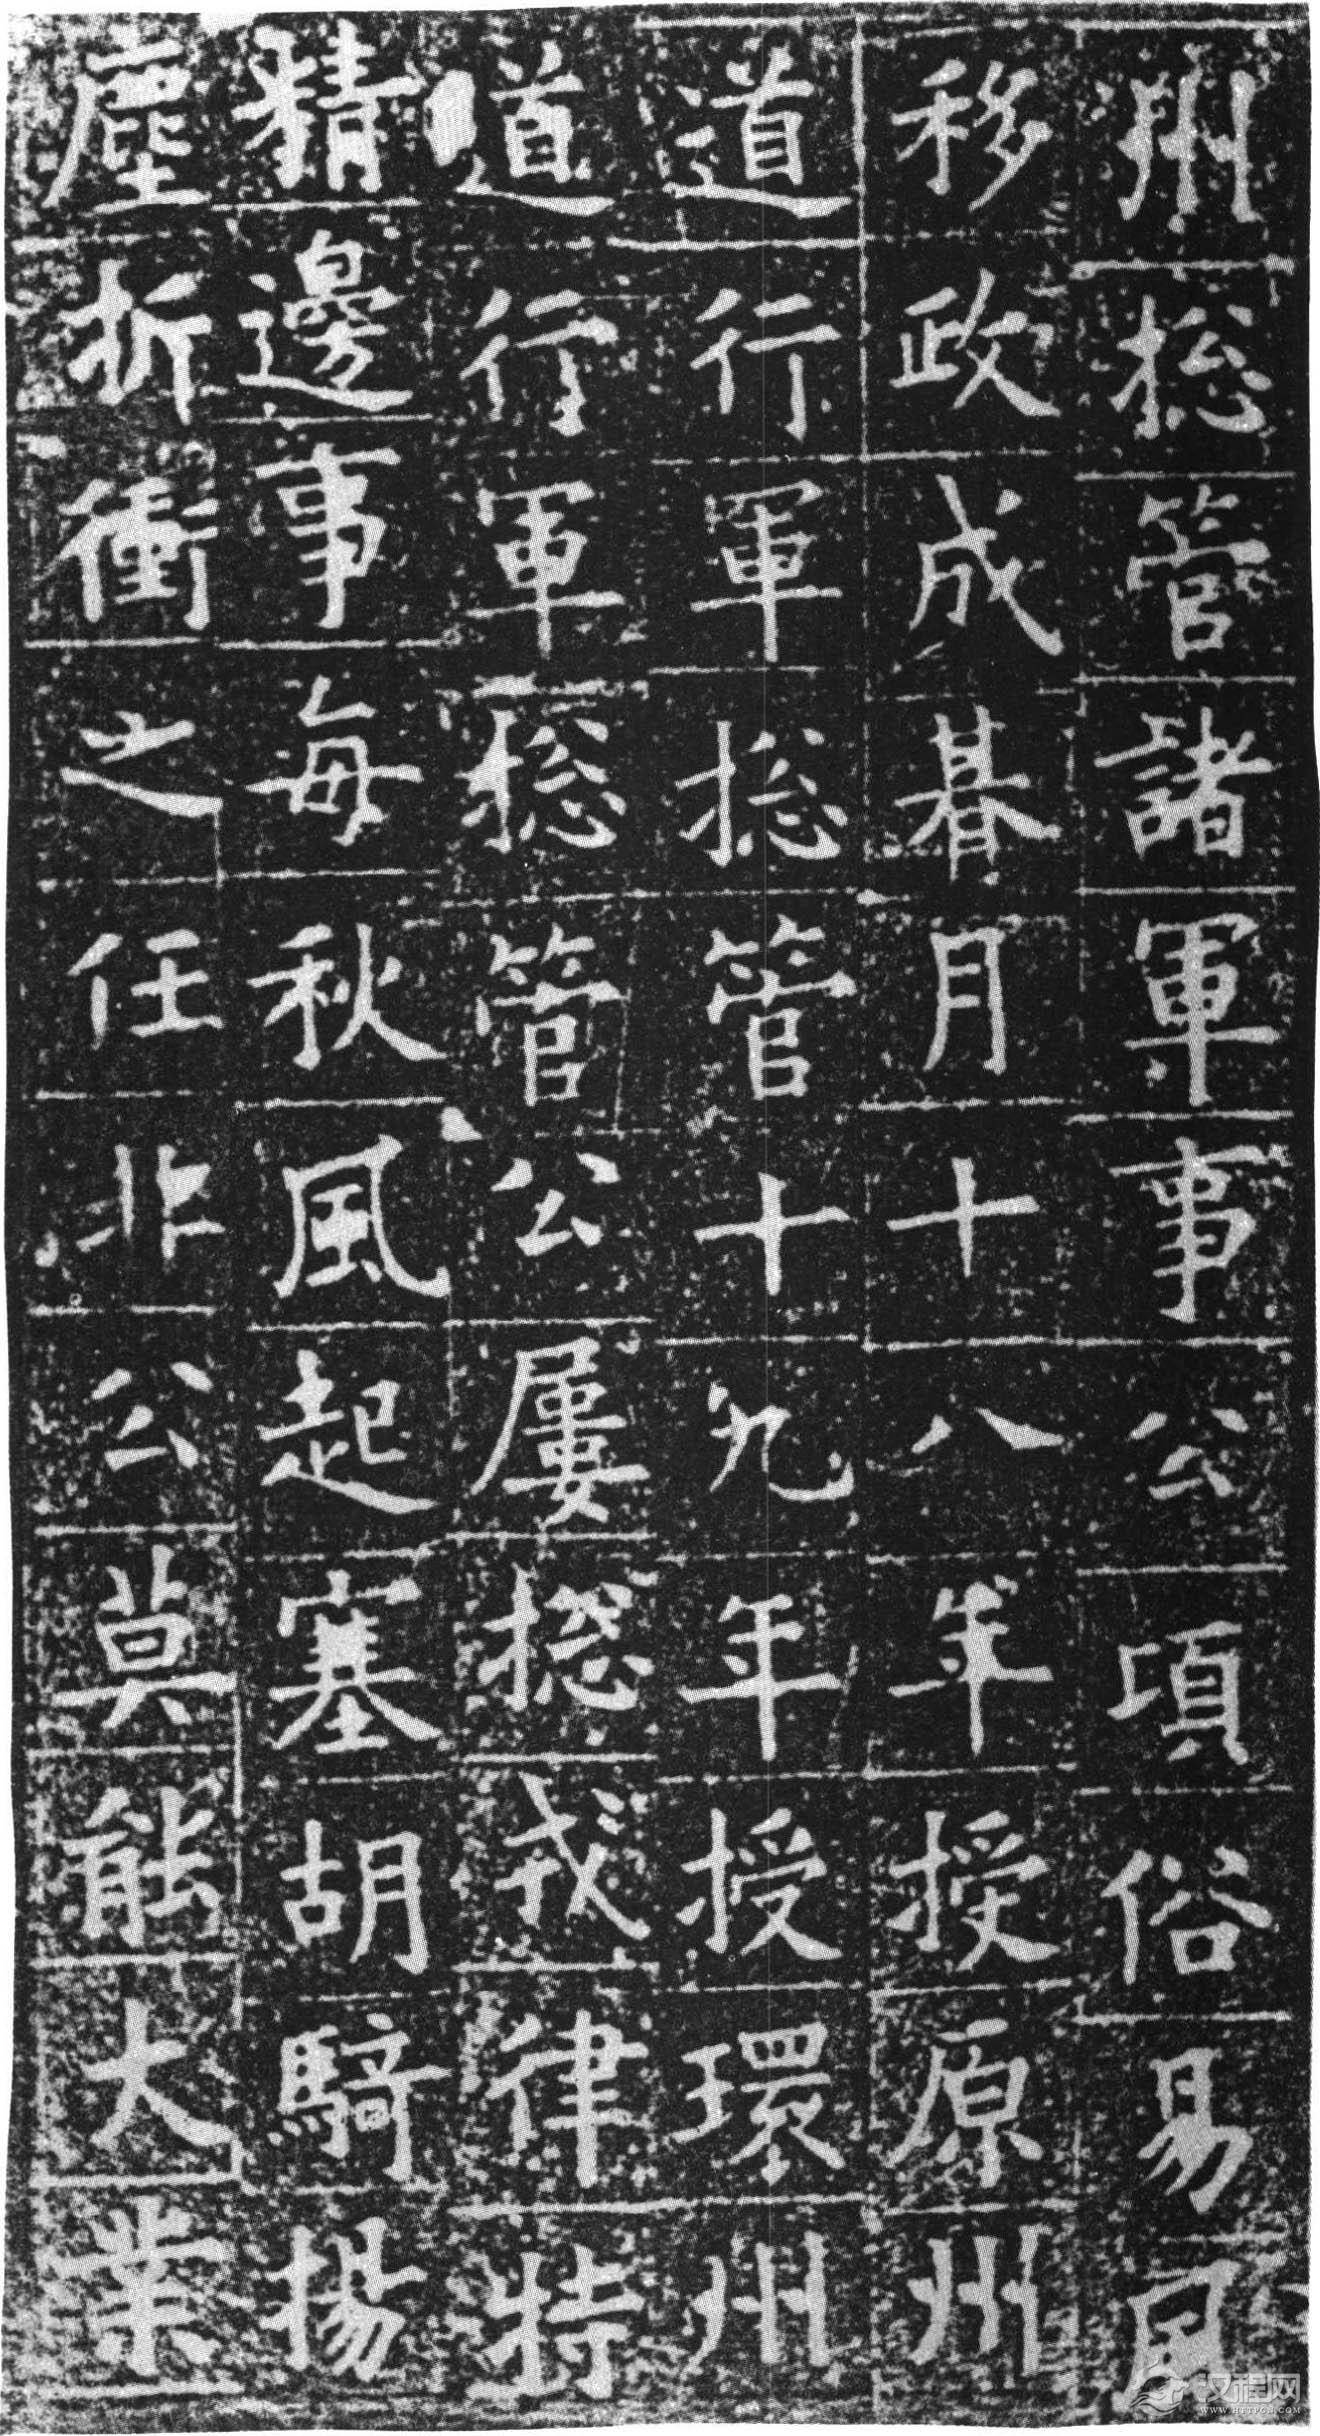 州揔管諸軍事公頃俗易風
移政成朞月十八年授原州
道行軍揔管十九年授環州
道行軍揔管公屢揔戎律特
精邊事每秋風起塞胡騎揚
塵折衝之任非公莫能大業
汉程网
WWW.HTTPCN.COM